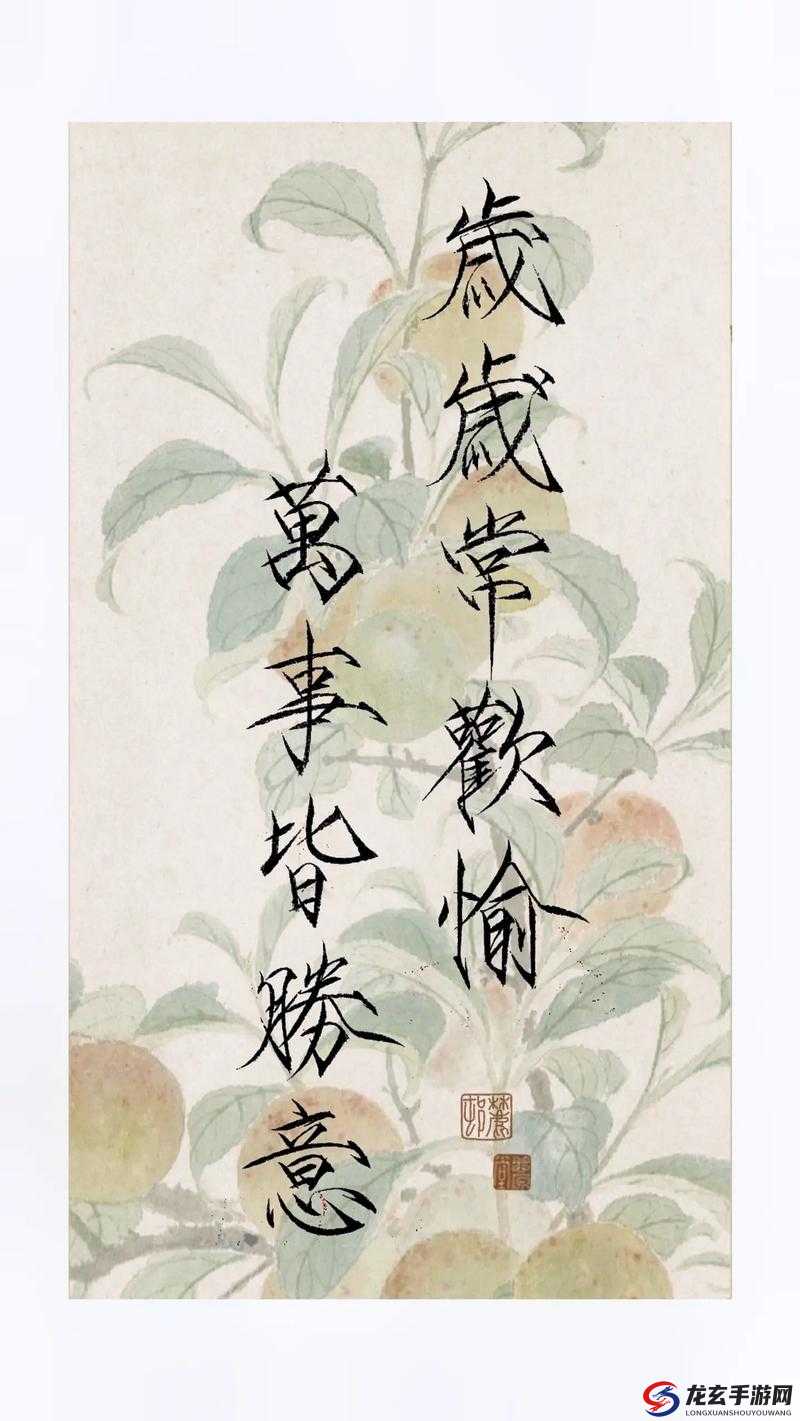 歲歲常歡愉
萬事皆勝意
龙玄手游网
LONGXUANSHOUYOUWANG